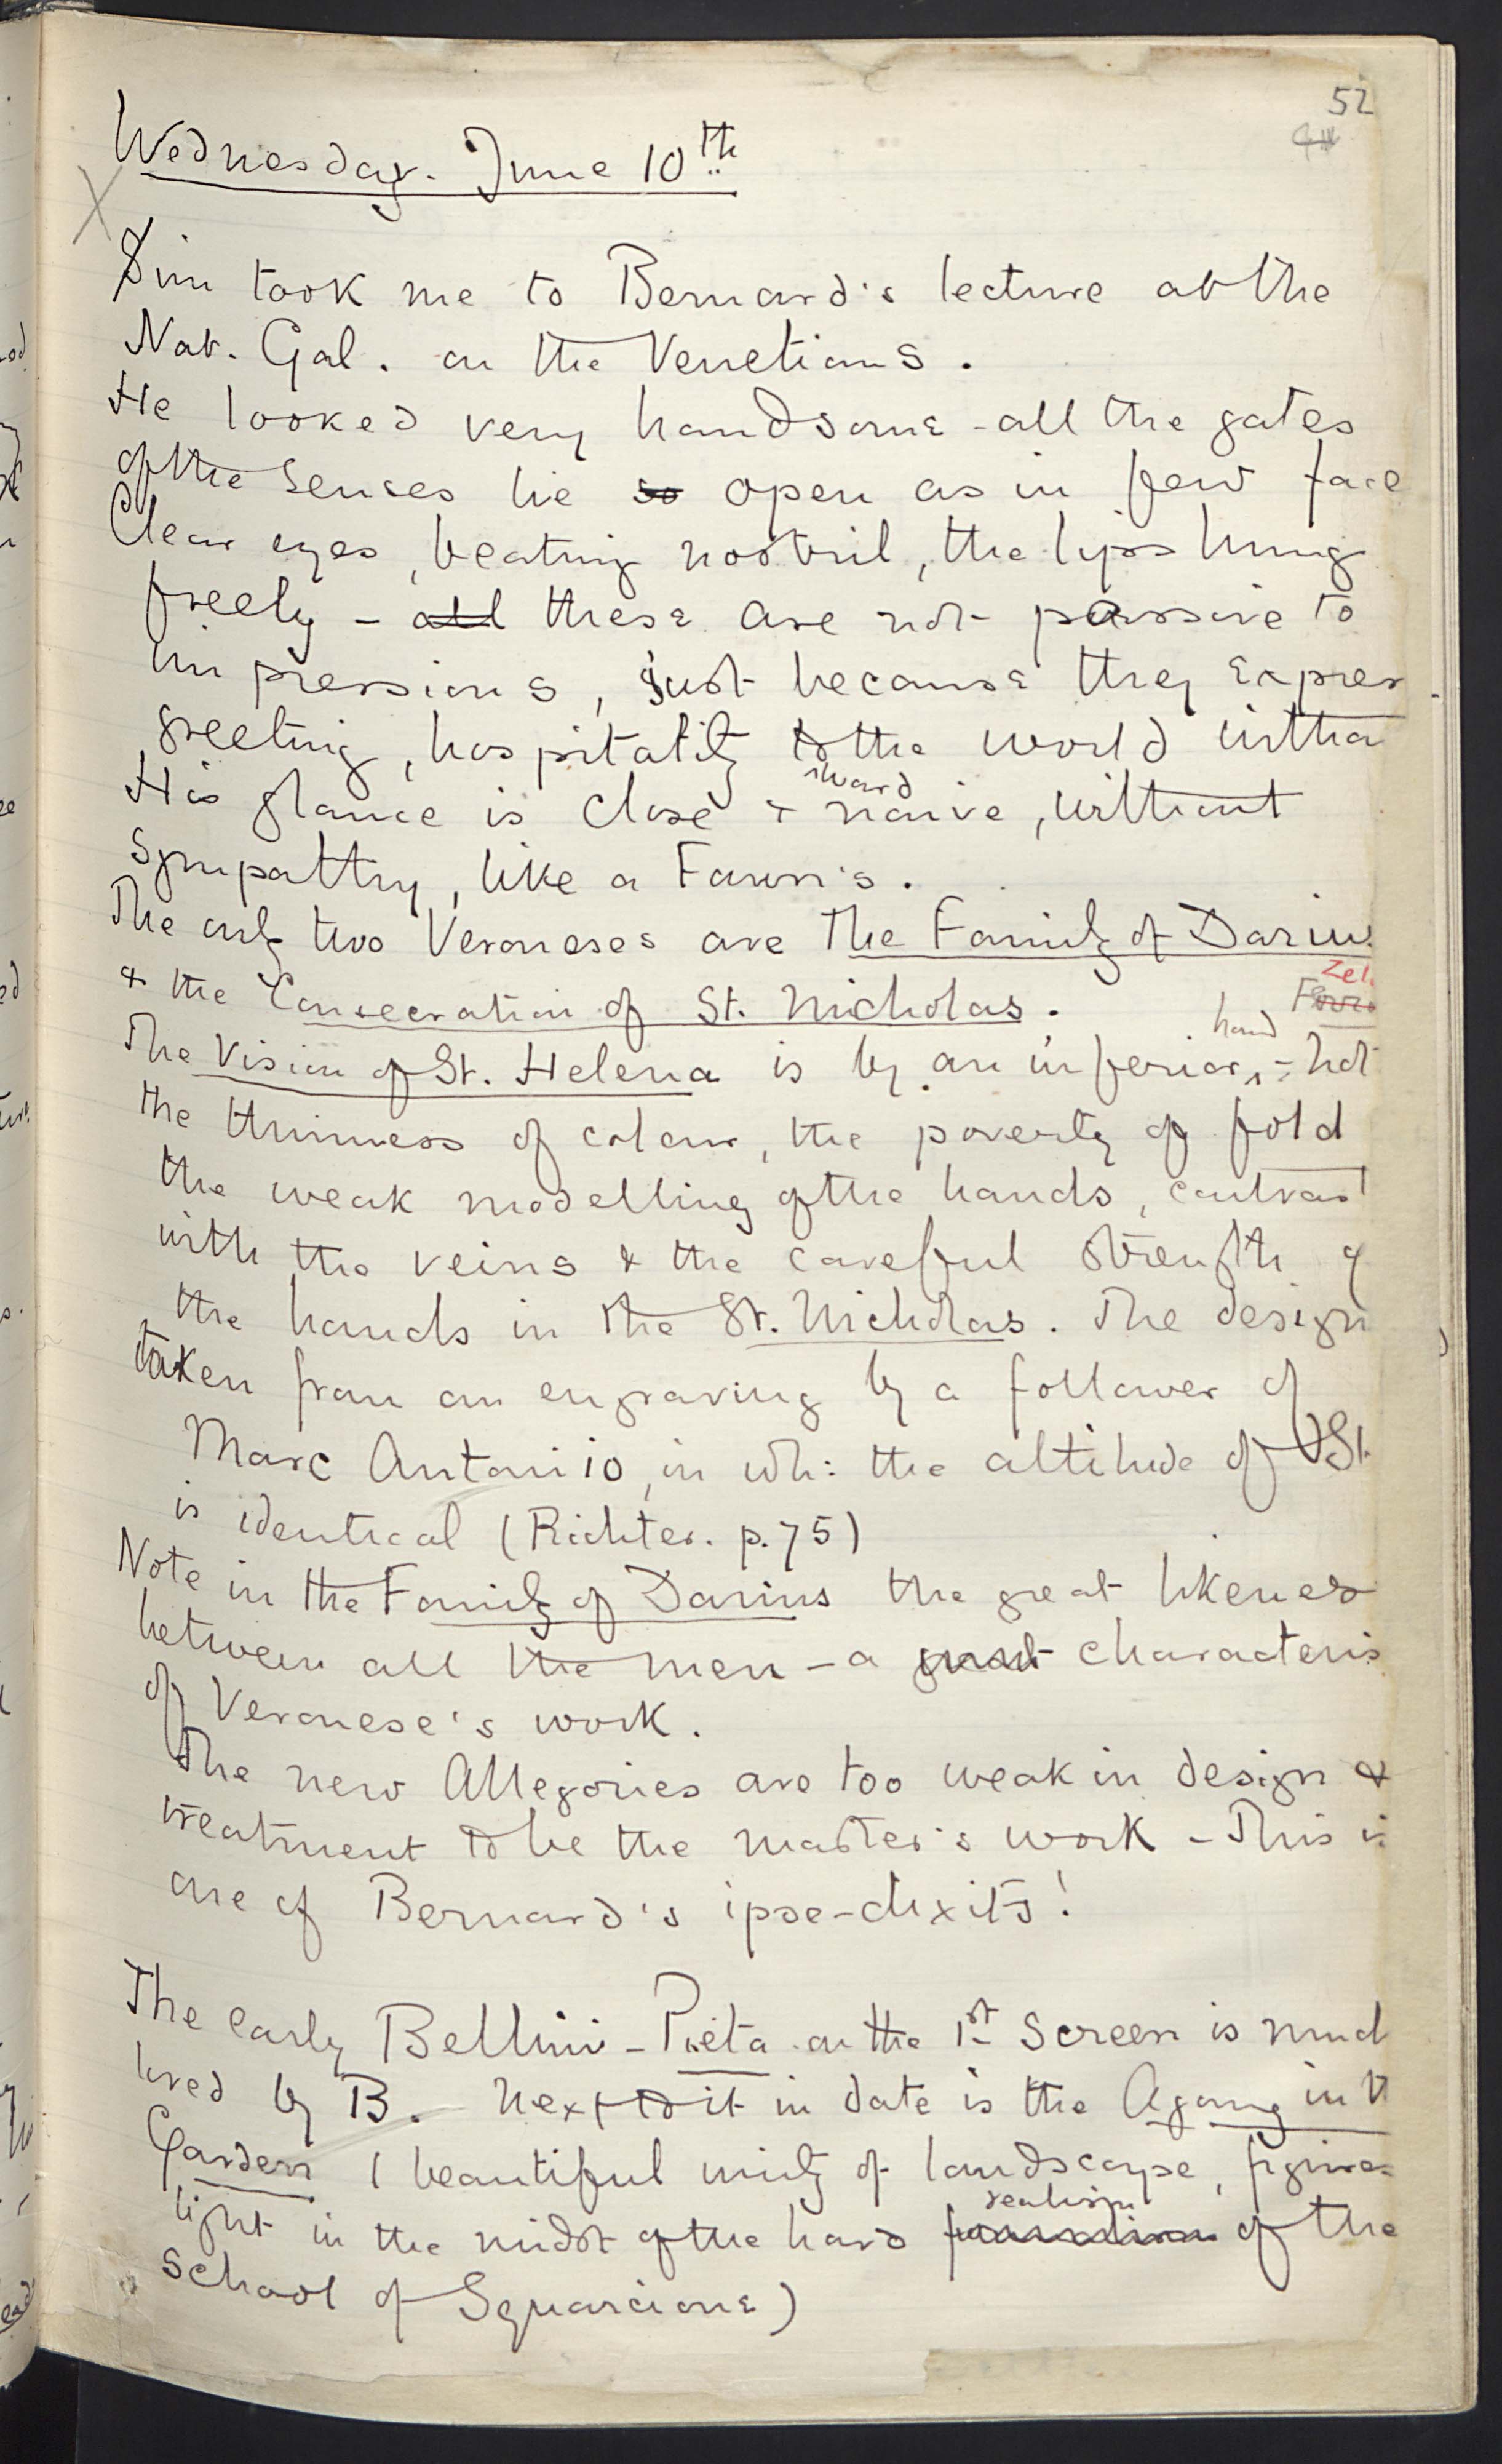 52
Wednesday. June 10th
Sim took me to Bernard's lecture at the
Nat. Gal. on the Venetians.
He looked very handsome - all the gates
of the senses lie so open as in few face
Clear eyes, beating nostril, the lips hung
freely - all these are not passive to
impressions, just because they expres
greeting, hospitality to the world witho
His glance is close & naive, without
hard
sympathy, like a Faun's.
The only two Veroneses are The Family of Darius
& the Consecration of St. Nicholas.
Zel.
hand
The Vision of St. Helena is by an inferior, - not
the thinness of colour, the poverty of fold
the weak modelling of the hands, contrast
with the veins & the careful strength of
the hands in the St. Nicholas. The design
taken from an engraving by a follower of
Marc Antonio, in wh: the attitude of St.
is identical (Richter. p. 75)
Note in the Family of Darius the great likeness
between all the men - a great characteris
of Veronese's work.
The new Allegories are too weak in design &
treatment to be the master's work - This is
one of Bernard's ipse-dixits!
The early Bellini - Pieta on the 1st Screen is much
loved by B. Next to it in date is the Agony in th
Garden (beautiful unity of landscape, figures
realism
light in the midst of the hard of the
School of Squarcione)